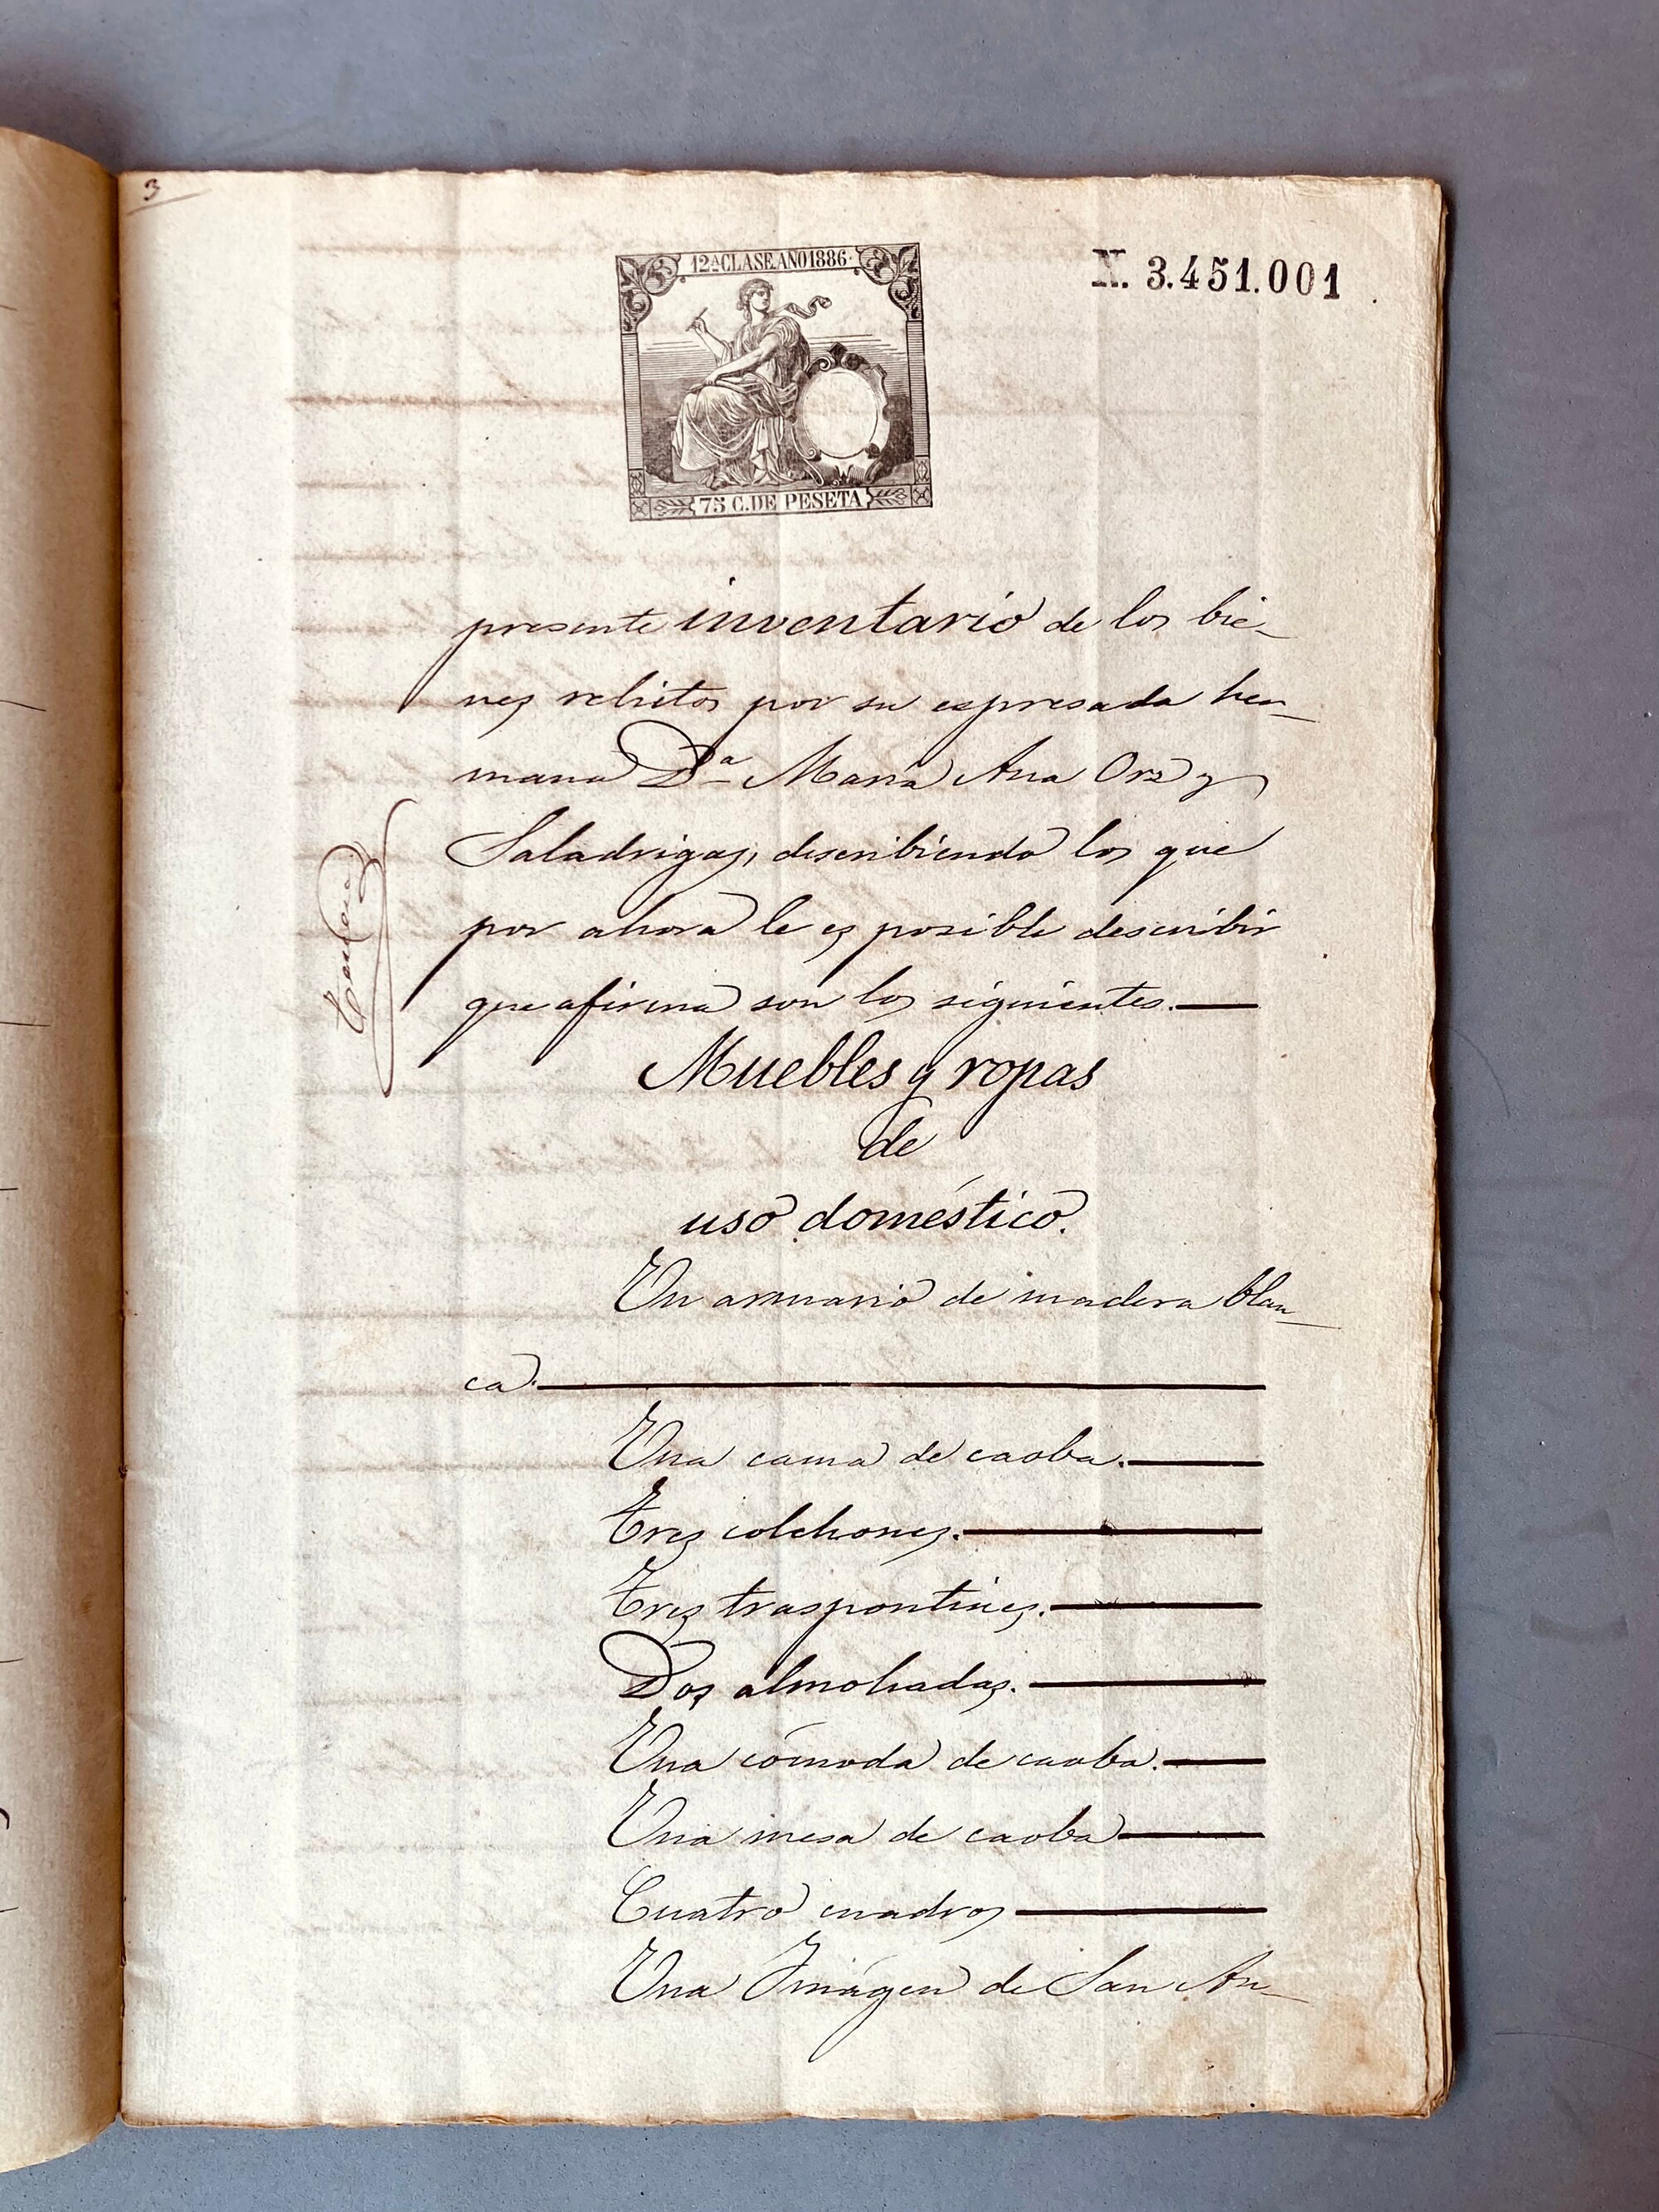 3
12ª CLASE. AÑO 1886.
N. 3.451.001
75 C. DE PESETA
presente inventario de los bie-
nes relictos por su espresada her-
mana D.ª Maria Ana Orz y
Saladrigas, describiendo los que
por ahora le es posible describir
que afirma son los siguientes.
Muebles y ropas
de
uso doméstico.
Un armario de madera blan-
ca.
Una cama de caoba.
Tres colchones.
Tres traspontines.
Dos almohadas.
Una cómoda de caoba.
Una mesa de caoba
Cuatro cuadros
Una Imágen de San An-